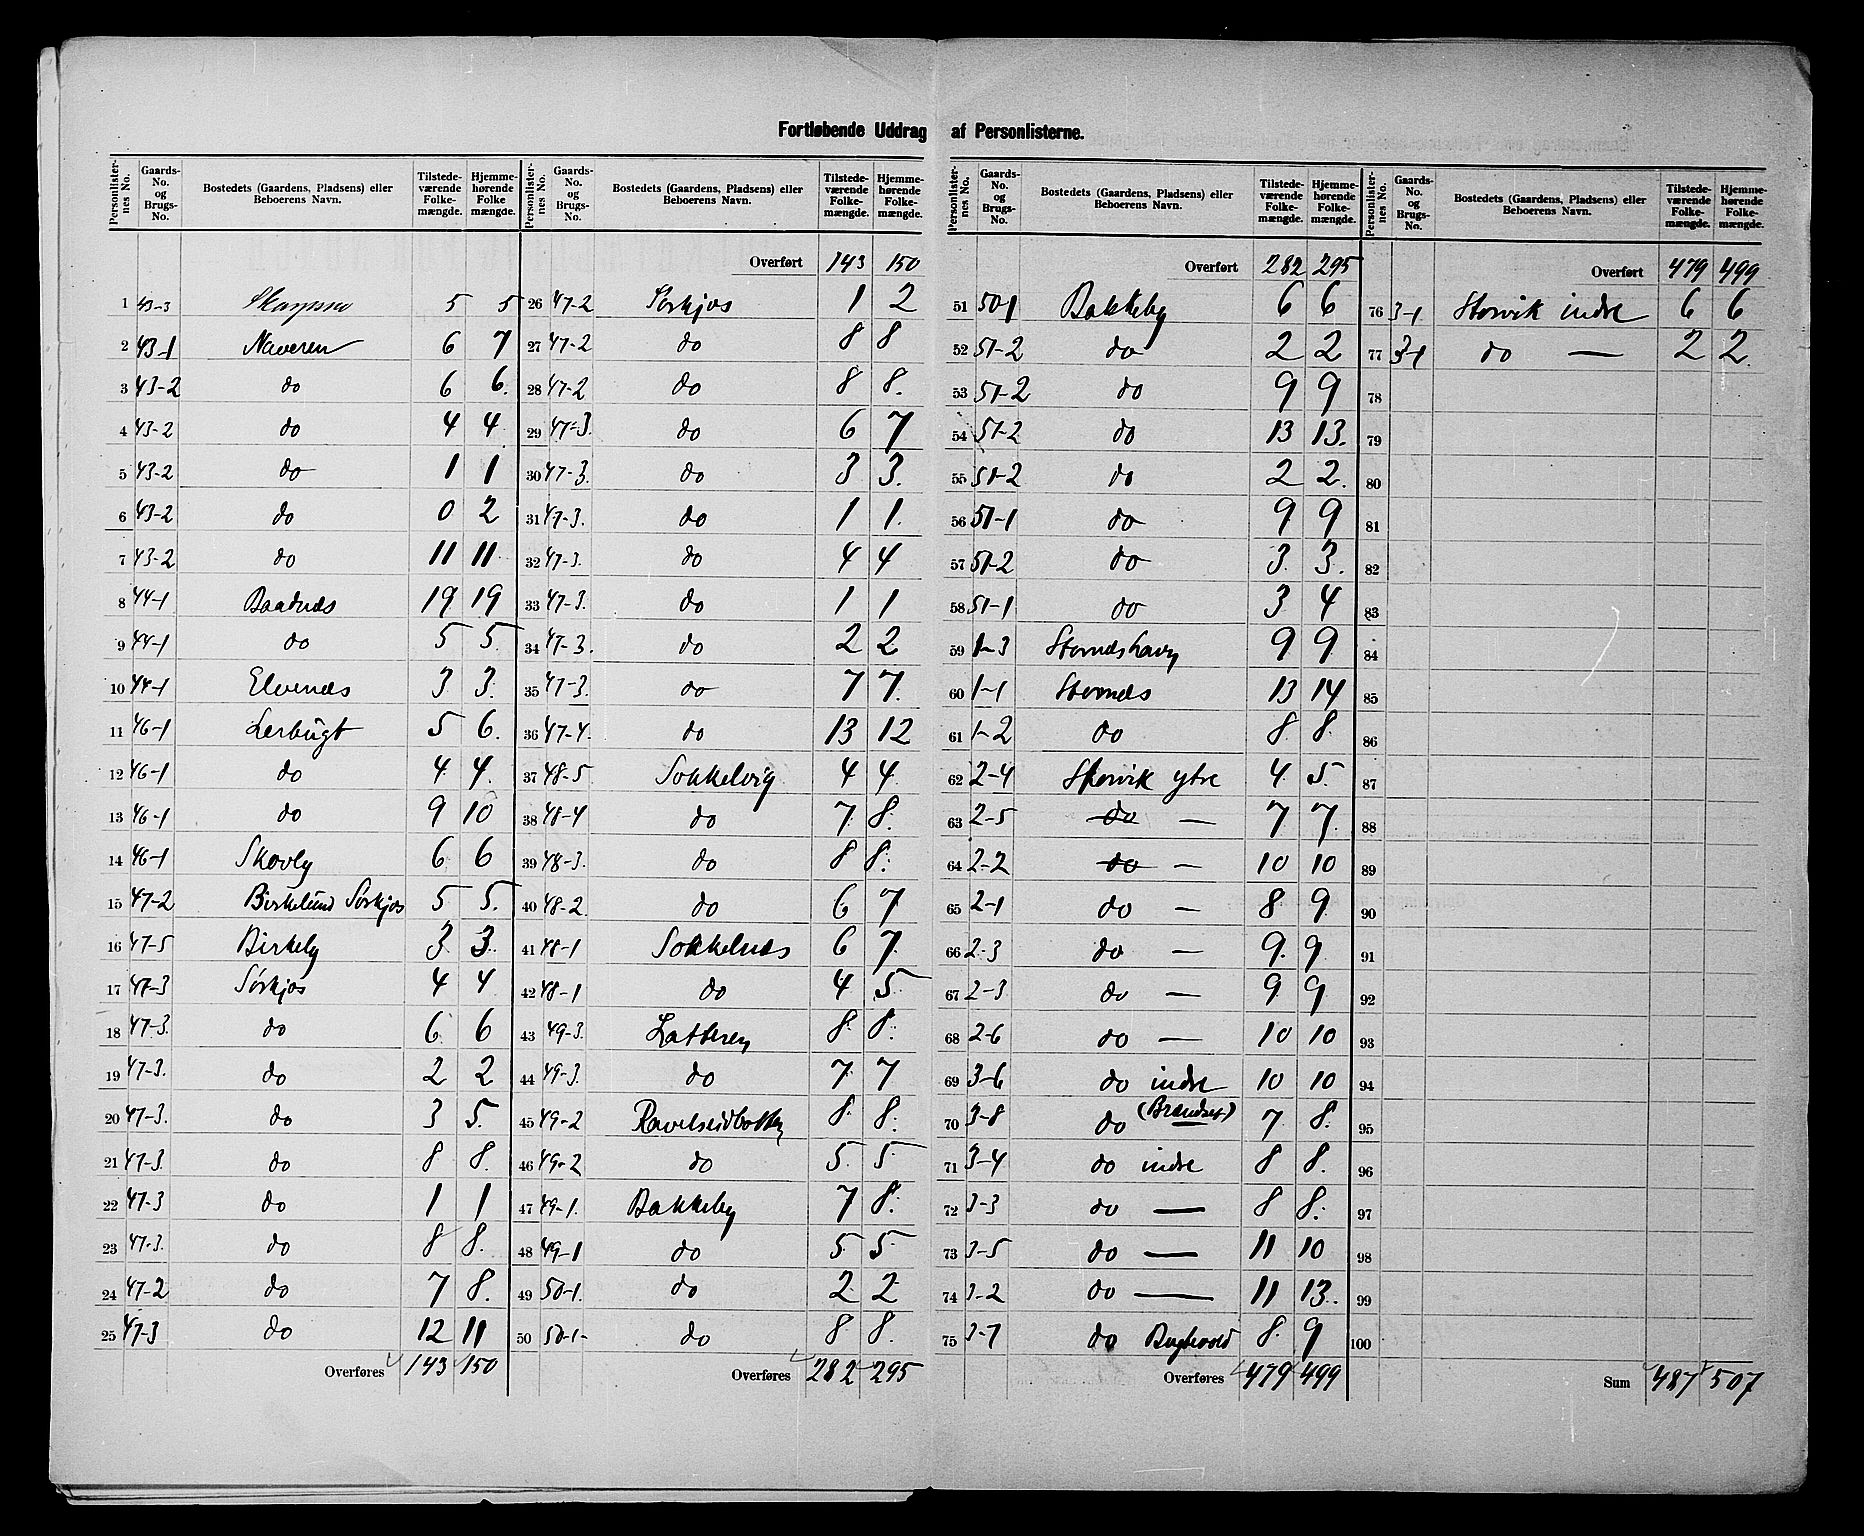 Fortløbende Uddrag af Personlisterne.
Personlister-nes No. | Gaards-No. og Brugs-No. | Bostedets (Gaardens, Pladsens) eller Beboerens Navn. | Tilstede-værende Folke-mængde. | Hjemme-hørende Folke mængde.
1 43-3 5 5
2 43-1 Naveren 6 7
3 43-2 do 6 6.
4 43-2 do 4 4
5 43-2 do 1 1
6 43-2 do 0 2
7 43-2 do 11 11
8 44-1 Baadnæs 19 19
9 44-1 do 5 5
10 44-1 Elvenæs 3 3.
11 46-1 Lerbugt 5 6.
12 46-1 do 4 4.
13 46-1 do 9 10
14 46-1 Skovly 6 6
15 47-2 Birkelund Sørkjos 5 5.
16 47-5 Birkely 3 3.
17 47-3 Sørkjos 4 4
18 47-3. do 6 6
19 47-3. do 2 2
20 47-3. do 3 5.
21 47-3. do 8 8.
22 47-3 do 1 1
23 47-3. do 8 8.
24 47-2 do 7 8.
25 47-3 do 12 11
Overføres 143 150
Personlister-nes No. | Gaards-No. og Brugs-No. | Bostedets (Gaardens, Pladsens) eller Beboerens Navn. | Tilstede-værende Folke-mængde. | Hjemme-hørende Folke-mængde.
Overført 143 150
26 47-2 Sørkjos 1 2
27 47-2 do 8 8
28 47-2 do 8 8.
29 47-3. do 6 7
30 47-3. do 3 3.
31 47-3. do 1 1.
32 47-3. do 4 4
33 47-3. do 1 1
34 47-3. do 2 2
35 47-3. do 7 7.
36 47-4. do 13 12
37 48-5 Sokkelvig 4 4
38 48-4 do 7 8.
39 48-3. do 8 8.
40 48-2. do 6 7
41 48-1 Sokkelnæs 6 7
42 48-1 do 4 5
43 49-3. Latteren 8 8.
44 49-3. do 7 7
45 49-2 Ravelseidbotten 8 8.
46 49-2 do 5 5
47 49-1. Bakkeby 7 8.
48 49-1 do 5 5
49 50-1. do 2 2
50 50-1- do 8 8.
Overføres 282 295
Personlister-nes No. | Gaards-No. og Brugs-No. | Bostedets (Gaardens, Pladsens) eller Beboerens Navn. | Tilstede-værende Folke-mængde. | Hjemme-hørende Folke-mængde.
Overført 282 295
51 50-1 Bakkeby 6 6
52 51-2 do 2 2
53 51-2 do 9 9
54 51-2 do 13 13.
55 51-2 do 2 2.
56 51-1 do 9 9
57 51-2 do 3 3.
58 51-1 do 3 4
59 1-3 Stornæshavn 9 9
60 1-1 Stornæs 13 14
61 1-2 do 8 8.
62 2-4 Storvik ytre 4 5
63 2-5 do — 7 7.
64 2-2 do — 10 10
65 2-1 do — 8 9.
66 2-3 do — 9. 9.
67 2-3 do — 9 9
68 2-6 do — 10 10
69 3-6 do indre 10 10
70 3-8 do (Brændset) 7 8.
71 3-4 do indre 8 8.
72 3-3 do — 8 8.
73 3-5 do — 11 10
74 3-2 do — 11 13.
75 3-7 do 8. 9
Overføres 479 499
Personlister-nes No. | Gaards-No. og Brugs-No. | Bostedets (Gaardens, Pladsens) eller Beboerens Navn. | Tilstede-værende Folke-mængde. | Hjemme-hørende Folke-mængde.
Overført 479 499
76 3-1 Storvik indre 6 6
77 3-1 do — 2 2.
78
79
80
81
82
83
84
85
86
87
88
89
90
91
92
93
94
95
96
97
98
99
100
Sum 487 507